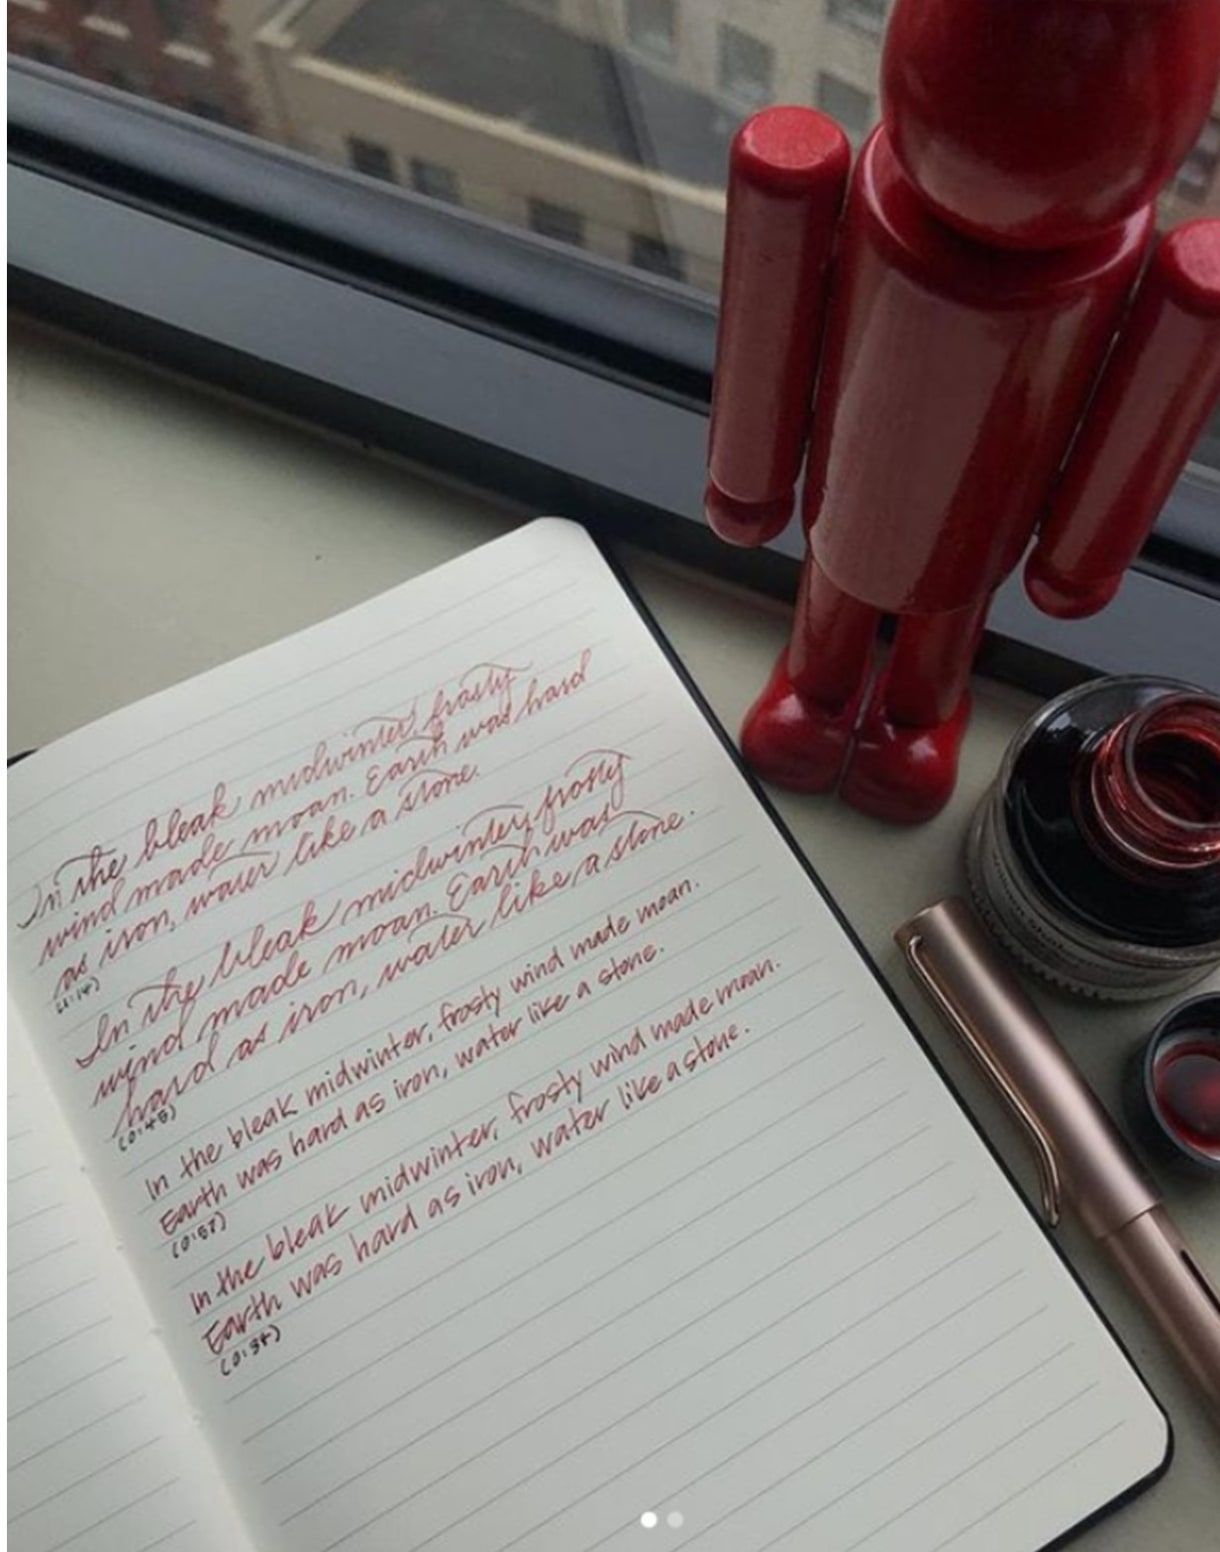 In the bleak midwinter, frosty
wind made moan. Earth was hard
as iron, water like a stone.
(1:14)
In the bleak midwinter, frosty
wind made moan. Earth was
hard as iron, water like a stone.
(0:48)
In the bleak midwinter, frosty wind made moan.
Earth was hard as iron, water like a stone.
(0:57)
In the bleak midwinter, frosty wind made moan.
Earth was hard as iron, water like a stone.
(0:37)